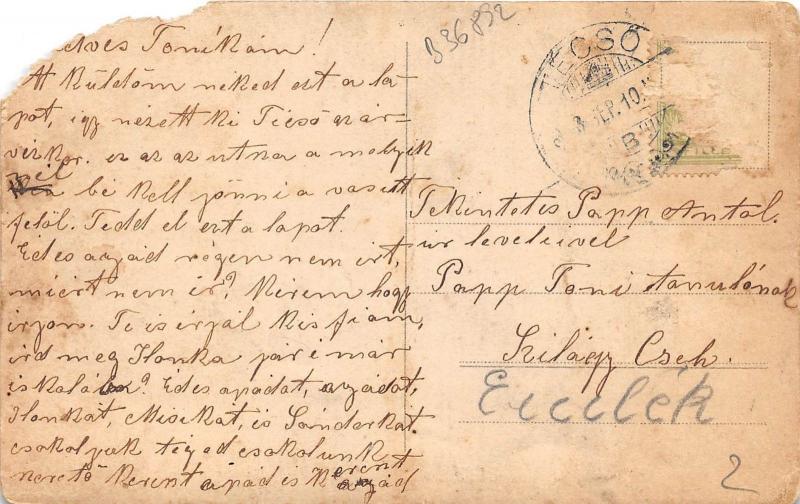 edves Tonikám!
Itt küldöm neked ezt a la
pot, igy nézett ki Técső az ár-
vizkor. ez az az utna a melyik
ből
be kell jönni a vasutt
felöl. Tedd el ezt a lapot.
Édes anyád régen nem irt,
miért nem ir? Kérem hogy
irjon. Te is irjál kis fiam,
ird meg Ilonka jár é már
iskolába? Édes apádat, anyádat,
Ilonkát, Misikát, is Sándorkát
csokoljuk téged csokolunk
szerető Kereszt apád is Kereszt
anyád
B 36892
TÉCSŐ
SEP. 10.
B
Tekintetes Papp Antal.
ur leveleivel
Papp Toni tanulónak
Szilágy Cseh.
Ecselék
2